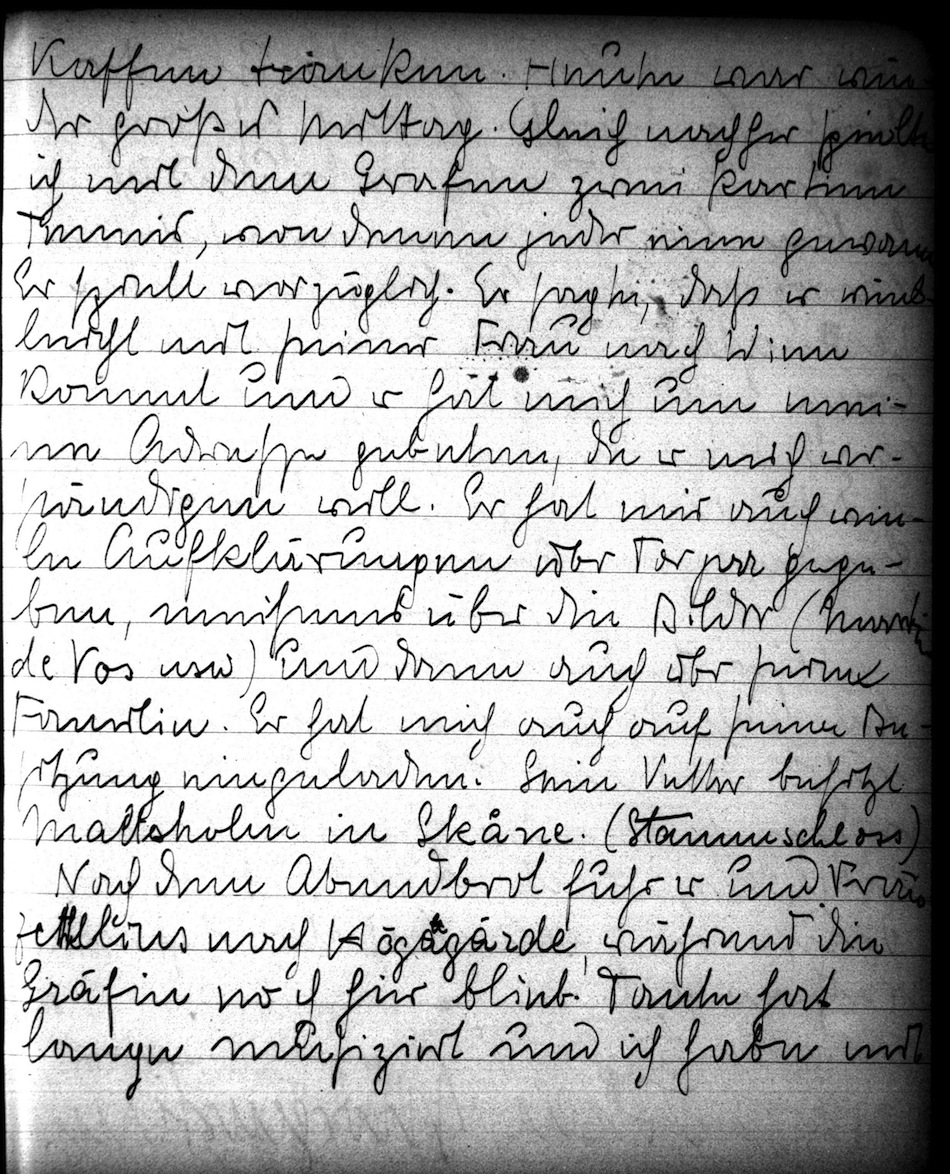 Kaffee trinken. Heute war wie-
der großes Mittag. Gleich nachher spielte
ich mit dem Grafen zwei Partien
Tennis, von denen jeder eine gewann
Er spielt vorzüglich. Er sagte, daß er viel-
leicht mit seiner Frau nach Wien
kommt und er hat mich um mei-
ne Adresse gebeten, da er mich ver-
ständigen will. Er hat mir auch vie-
le Aufklärungen über Torpa gege-
ben, meistens über die Bilder (Martin
de Vos usw) und dann auch über seine
Familie. Er hat mich auch auf seine Be-
sitzung eingeladen. Sein Vetter besitzt
Maltesholm in Skåne. (Stammschloss)
Nach dem Abendbrot fuhr er und Frau
nach Högagärde, während die
Gräfin noch hier blieb. Tante hat
lange musiziert und ich habe mit